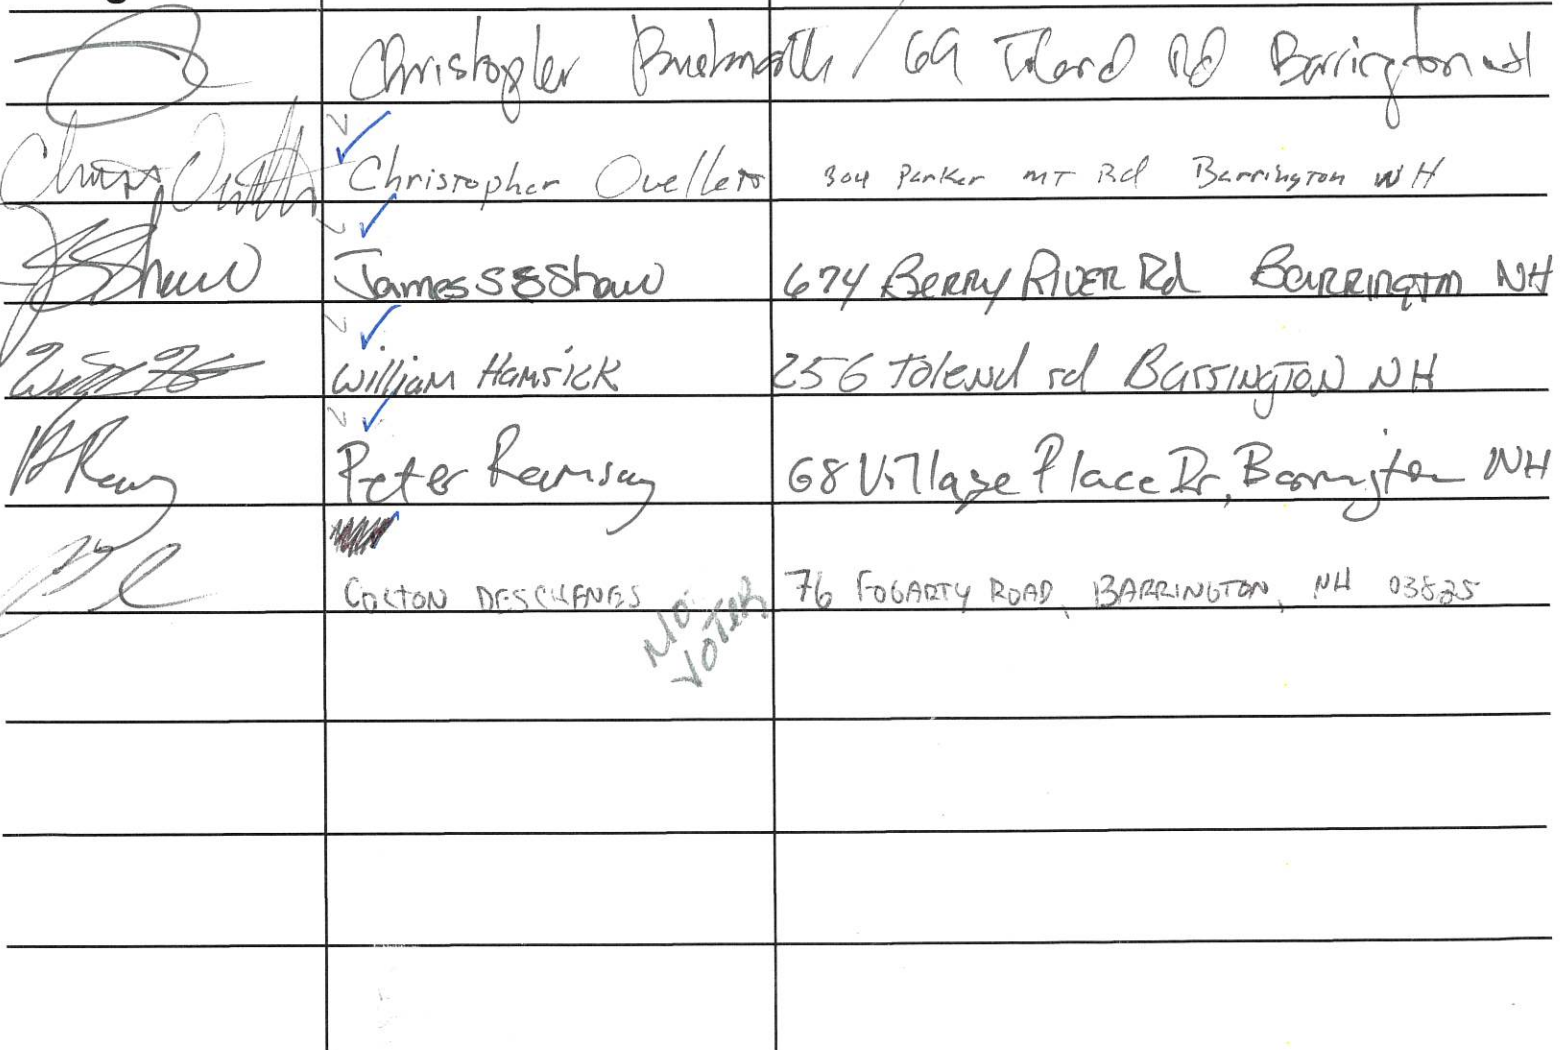 Christopher / 69 Tolend Rd Barrington NH
Christopher Ouellette 304 Parker MT Rd Barrington NH
JSShaw James S Shaw 674 Berry River Rd Barrington NH
William Hamrick 256 Tolend rd Barrington NH
Peter Ramsay 68 Village Place Dr, Barrington NH
COLTON DESCHENES 76 FOGARTY ROAD, BARRINGTON, NH 03825
NO
VOTER